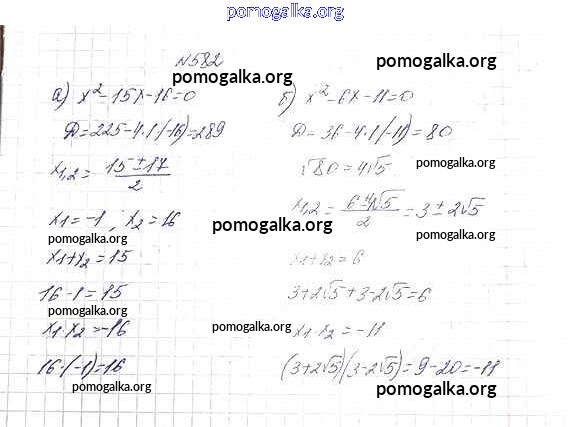 pomogalka.org
№582
pomogalka.org
pomogalka.org
а) x² - 15x - 16 = 0
D = 225 - 4·1(-16) = 289
x1,2 = (15 ± 17)/2
x1 = -1, x2 = 16
pomogalka.org
x1 + x2 = 15
16 - 1 = 15
pomogalka.org
x1 · x2 = -16
16·(-1) = 16
pomogalka.org
б) x² - 6x - 11 = 0
D = 36 - 4·1(-11) = 80
√80 = 4√5
pomogalka.org
x1,2 = (6 ± 4√5)/2 = 3 ± 2√5
pomogalka.org
pomogalka.org
x1 + x2 = 6
3 + 2√5 + 3 - 2√5 = 6
pomogalka.org
x1 · x2 = -11
(3 + 2√5)(3 - 2√5) = 9 - 20 = -11
pomogalka.org